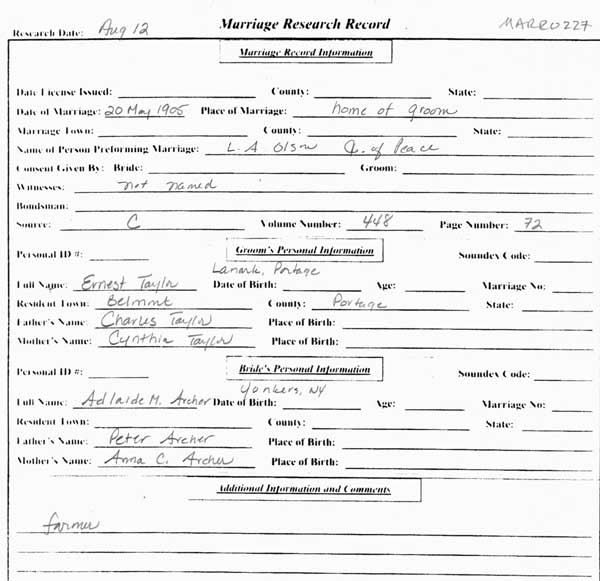 Research Date: Aug 12 Marriage Research Record MARR0227
Marriage Record Information
Date License Issued: County: State:
Date of Marriage: 20 May 1905 Place of Marriage: home of groom
Marriage Town: County: State:
Name of Person Preforming Marriage: L. A Olson J. of Peace
Consent Given By: Bride: Groom:
Witnesses: not named
Bondsman:
Source: C Volume Number: 448 Page Number: 72
Personal ID #: Groom's Personal Information Soundex Code:
Lanark, Portage
Full Name: Ernest Taylor Date of Birth: Age: Marriage No:
Resident Town: Belmont County: Portage State:
Father's Name: Charles Taylor Place of Birth:
Mother's Name: Cynthia Taylor Place of Birth:
Personal ID #: Bride's Personal Information Soundex Code:
Yonkers, NY
Full Name: Adlaide M. Archer Date of Birth: Age: Marriage No:
Resident Town: County: State:
Father's Name: Peter Archer Place of Birth:
Mother's Name: Anna C. Archer Place of Birth:
Additional Information and Comments
farmer